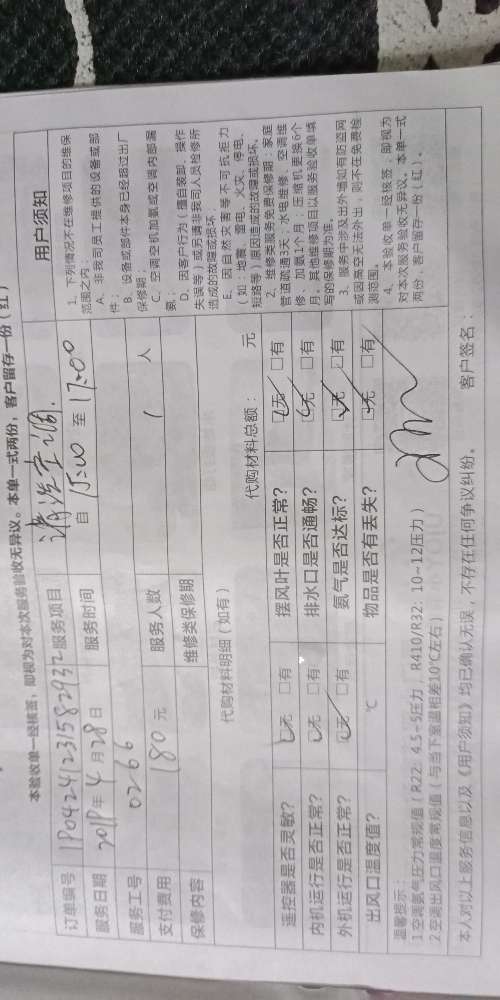 本验收单一经核签，即视为对本次服务验收无异议。本单一式两份，客户留存一份（红）
订单编号 服务项目 清洗空调.
服务日期 2019年4月28日 服务时间 自 15:00 至 17:00
服务工号 0266
支付费用 180元 服务人数 1 人
保修内容 维修类保修期
代购材料明细（如有） 代购材料总额： 元
遥控器是否灵敏？ □无 □有 摆风叶是否正常？ □无 □有
内机运行是否正常？ □无 □有 排水口是否通畅？ □无 □有
外机运行是否正常？ □无 □有 氨气是否达标？ □无 □有
出风口温度值？ ℃ 物品是否有丢失？ □无 □有
用户须知
1、下列情况不在维修项目的维保
范围之内：
A、非我司员工提供的设备或部
件；
B、设备或部件本身已经超过出厂
保修期；
C、空调空机加氨或空调内部漏
氨；
D、因客户行为（擅自装卸、操作
失误等）或另请非我司人员检修所
造成的故障或损坏
E、因自然灾害等不可抗拒力
（如：地震、雷电、火灾、停电、
短路等）原因造成的故障或损坏。
2、维修类服务免费保修期：家庭
管道疏通3天；水电维修、空调维
修、加氨1个月；压缩机更换6个
月，其他维修项目以服务验收单填
写的保修期为准。
3、服务涉及出外墙如有防盗网
或因高空无法外出，则不在免费检
测范围。
4、本验收单一经核签，即视为
对本次服务验收无异议。本单一式
两份，客户留存一份（红）。
温馨提示：
1空调氨气压力常规值（R22：4.5~5压力 R410/R32：10~12压力）
2空调出风口温度常规值（与当下室温相差10℃左右）
本人对以上服务信息以及《用户须知》均已确认无误，不存在任何争议纠纷。 客户签名：